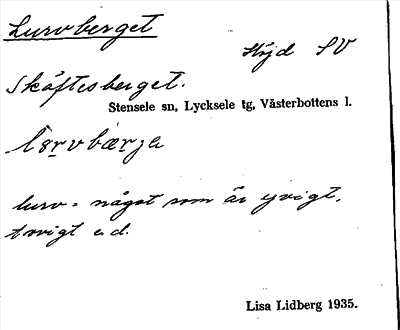 Lurvberget
Höjd SV
Skäftesberget.
Stensele sn, Lycksele tg, Västerbottens l.
lurv = något som är yvigt,
risigt e.d.
Lisa Lidberg 1935.